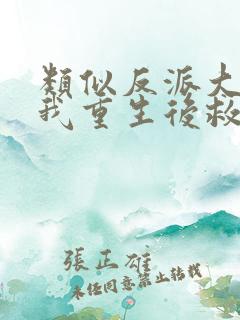 類似反派大
我重生後救
張正雄
未经同意禁止转载